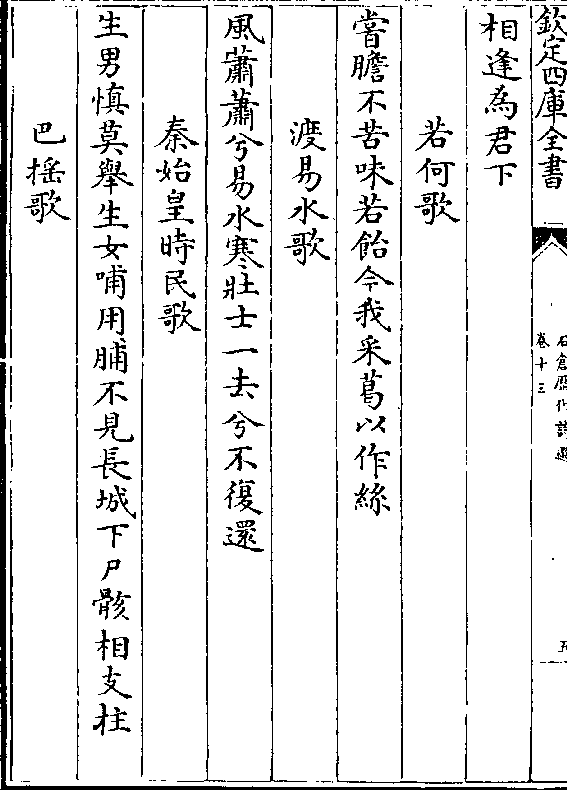 欽定四庫全書
石倉歷代詩選
卷十三
五
相逢為君下
若何歌
嘗膽不苦味若飴今我采葛以作絲
渡易水歌
風蕭蕭兮易水寒壯士一去兮不復還
秦始皇時民歌
生男慎莫舉生女哺用脯不見長城下尸骸相支柱
巴揺歌